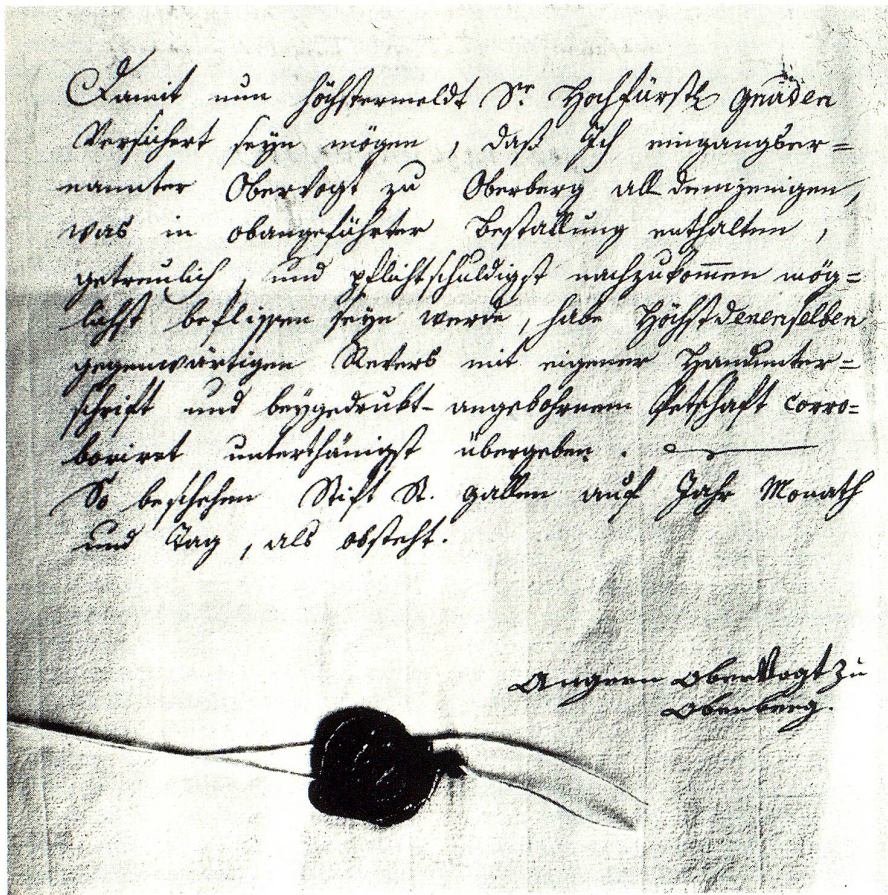 Damit nun höchstermeldt Sr. Hochfürstl. Gnaden
Versichert seyn mögen, daß Ich eingangser=
nannter Obervogt zu Oberberg all demjenigen,
was in obangeführter Bestallung enthalten,
getreulich, und pflichtschuldigst nachzukom̅en mög=
lichst beflissen seyn werde, habe Höchstdenenselben
gegenwärtigen Revers mit eigener Handunter=
schrift und beygedrukt- angebohrnem Petschaft corro=
borirt unterthänigst übergeben.
So beschehen Stift St. Gallen auf Jahr Monath
und Tag, als obsteht.
Angern Obervogt zu
Oberberg.